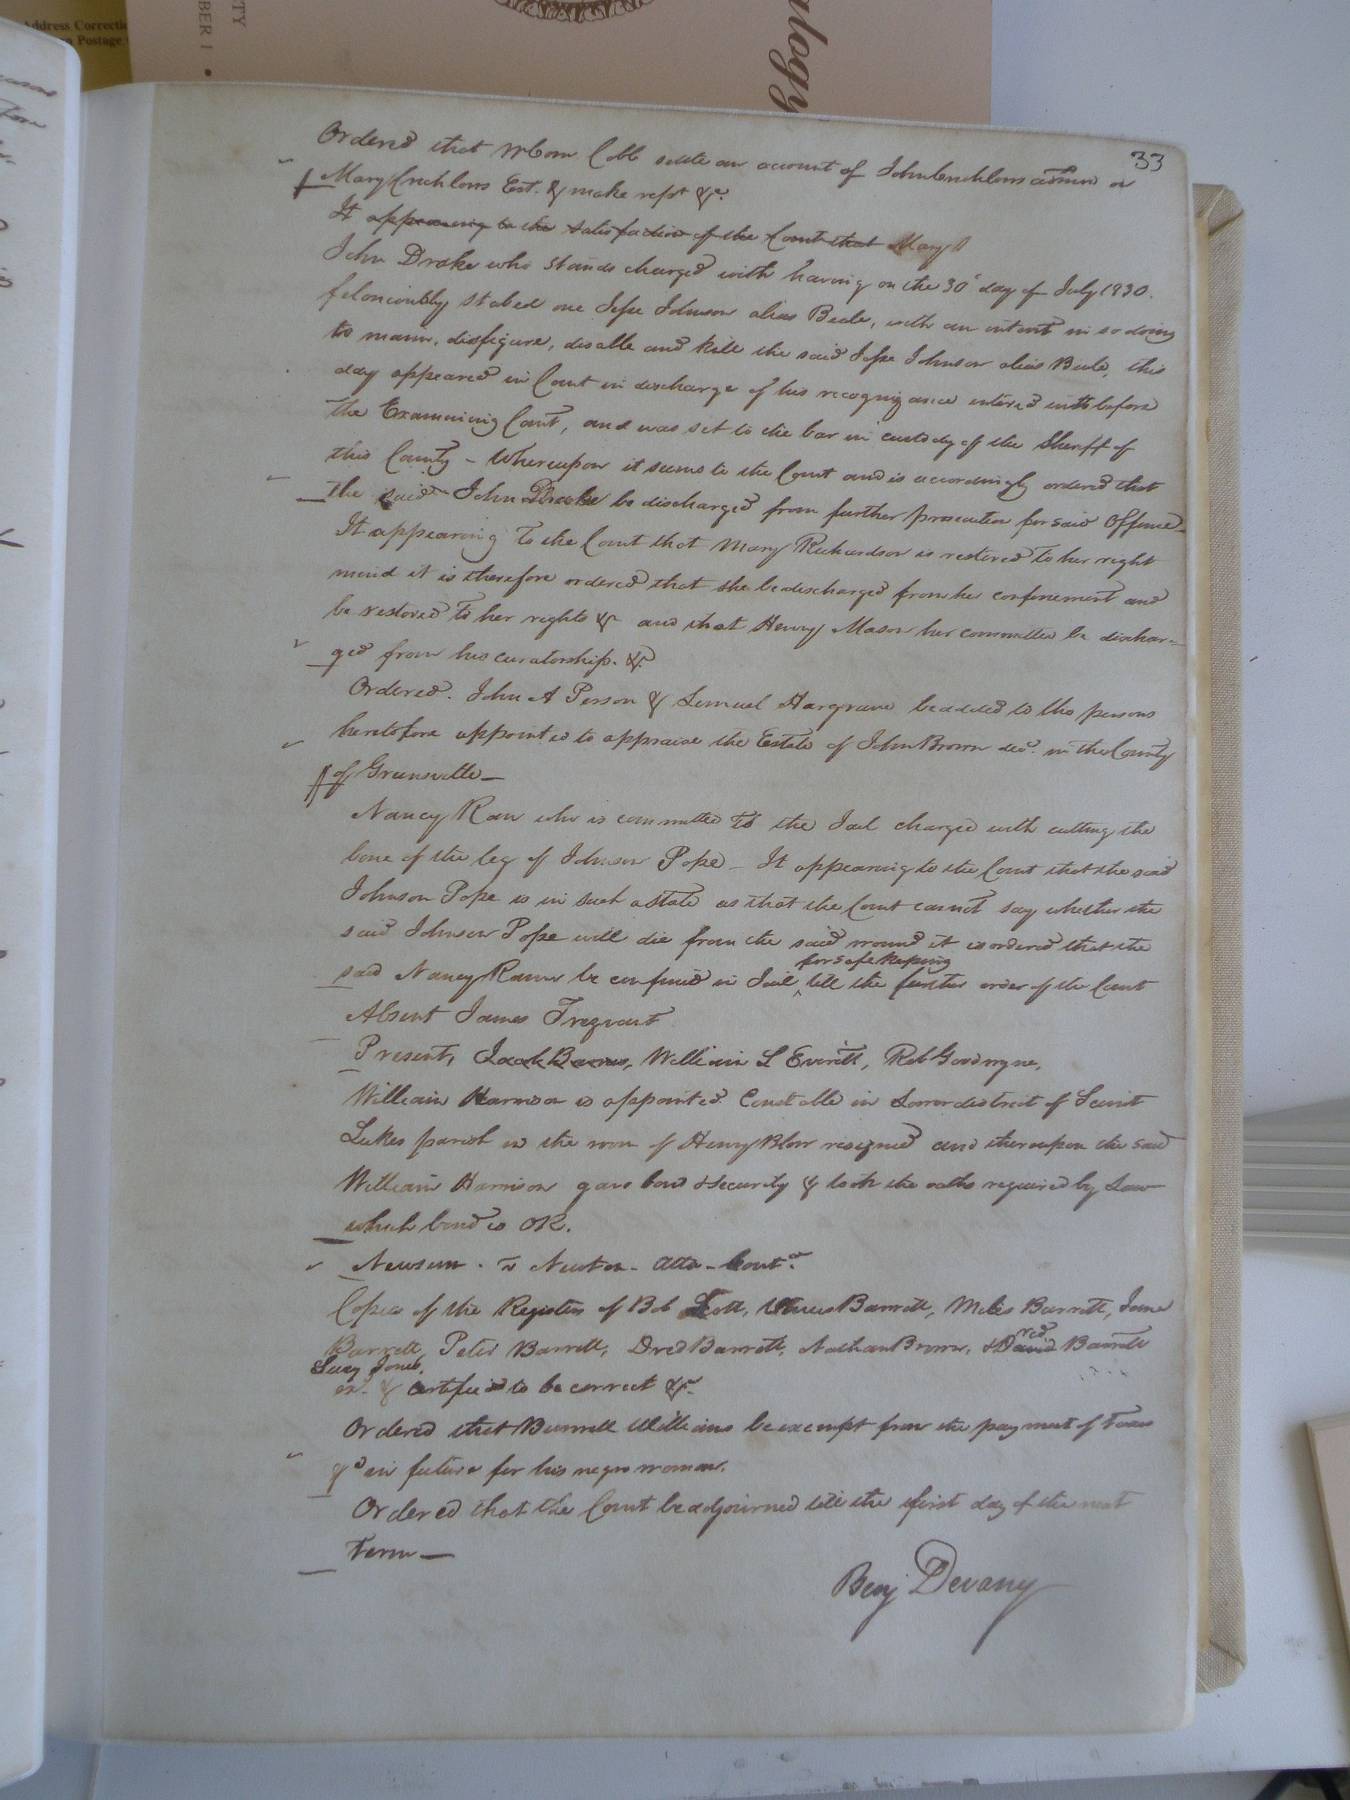 Address Correcti
n Postage
TY
BER 1 •
ology
33
Ordered that Wm Cobb settle an account of John Crichlows admn on
Mary Crichlows Est. & make rept &c.
It appearing to the satisfaction of the Court that Mary
John Drake who stands charged with having on the 30 day of July 1830.
feloniously stabed one Jesse Johnson alias Beele, with an intent in so doing
to maim, disfigure, disable and kill the said Jesse Johnson alias Beele, this
day appeared in Court in discharge of his recognizance entered into before
the Examining Court, and was set to the bar in custody of the Sheriff of
this County – Whereupon it seems to the Court and is accordingly ordered that
the said John Drake be discharged from further prosecution for said Offence
It appearing to the Court that Mary Richardson is restored to her right
mind it is therefore ordered that she be discharged from her confinement and
be restored to her rights &c and that Henry Mason her committee be dischar=
ged from his curatorship. &c.
Ordered. John A Person & Lemuel Hargrave be added to the persons
heretofore appointed to appraise the Estate of John Brown decd. in the County
of Greensville –
Nancy Rawr who is committed to the Jail charged with cutting the
bone of the leg of Johnson Pope – It appearing to the Court that the said
Johnson Pope is in such a state as that the Court cannot say whether the
said Johnson Pope will die from the said wound it is ordered that the
for safe keeping
said Nancy Rawr be confined in Jail ^ till the further order of the Court
Absent James Trezvant
Present, Jacob Barnes, William L Everitt, Rob Goodwyne,
William Harrison is appointed Constable in Lower district of Saint
Lukes parish in the room of Henry Blow resigned and thereupon the said
William Harrison gave bond & security & took the oaths required by Law
which bond is OR.
Newsum. v Newton – atta – Contd.
Copies of the Registers of Bob Scott, Barrett, Miles Barrett, Jane
Barrett, Peter Barrett, Dred Barrett, Nathan Brown, & David Barrett
red
Lucy Jones
ex. & certified to be correct &c.
Ordered that Burwell Williams be exempt from the payment of taxes
&c in future for his negro woman.
Ordered that the Court be adjourned till the first day of the next
Term –
Benj Devany